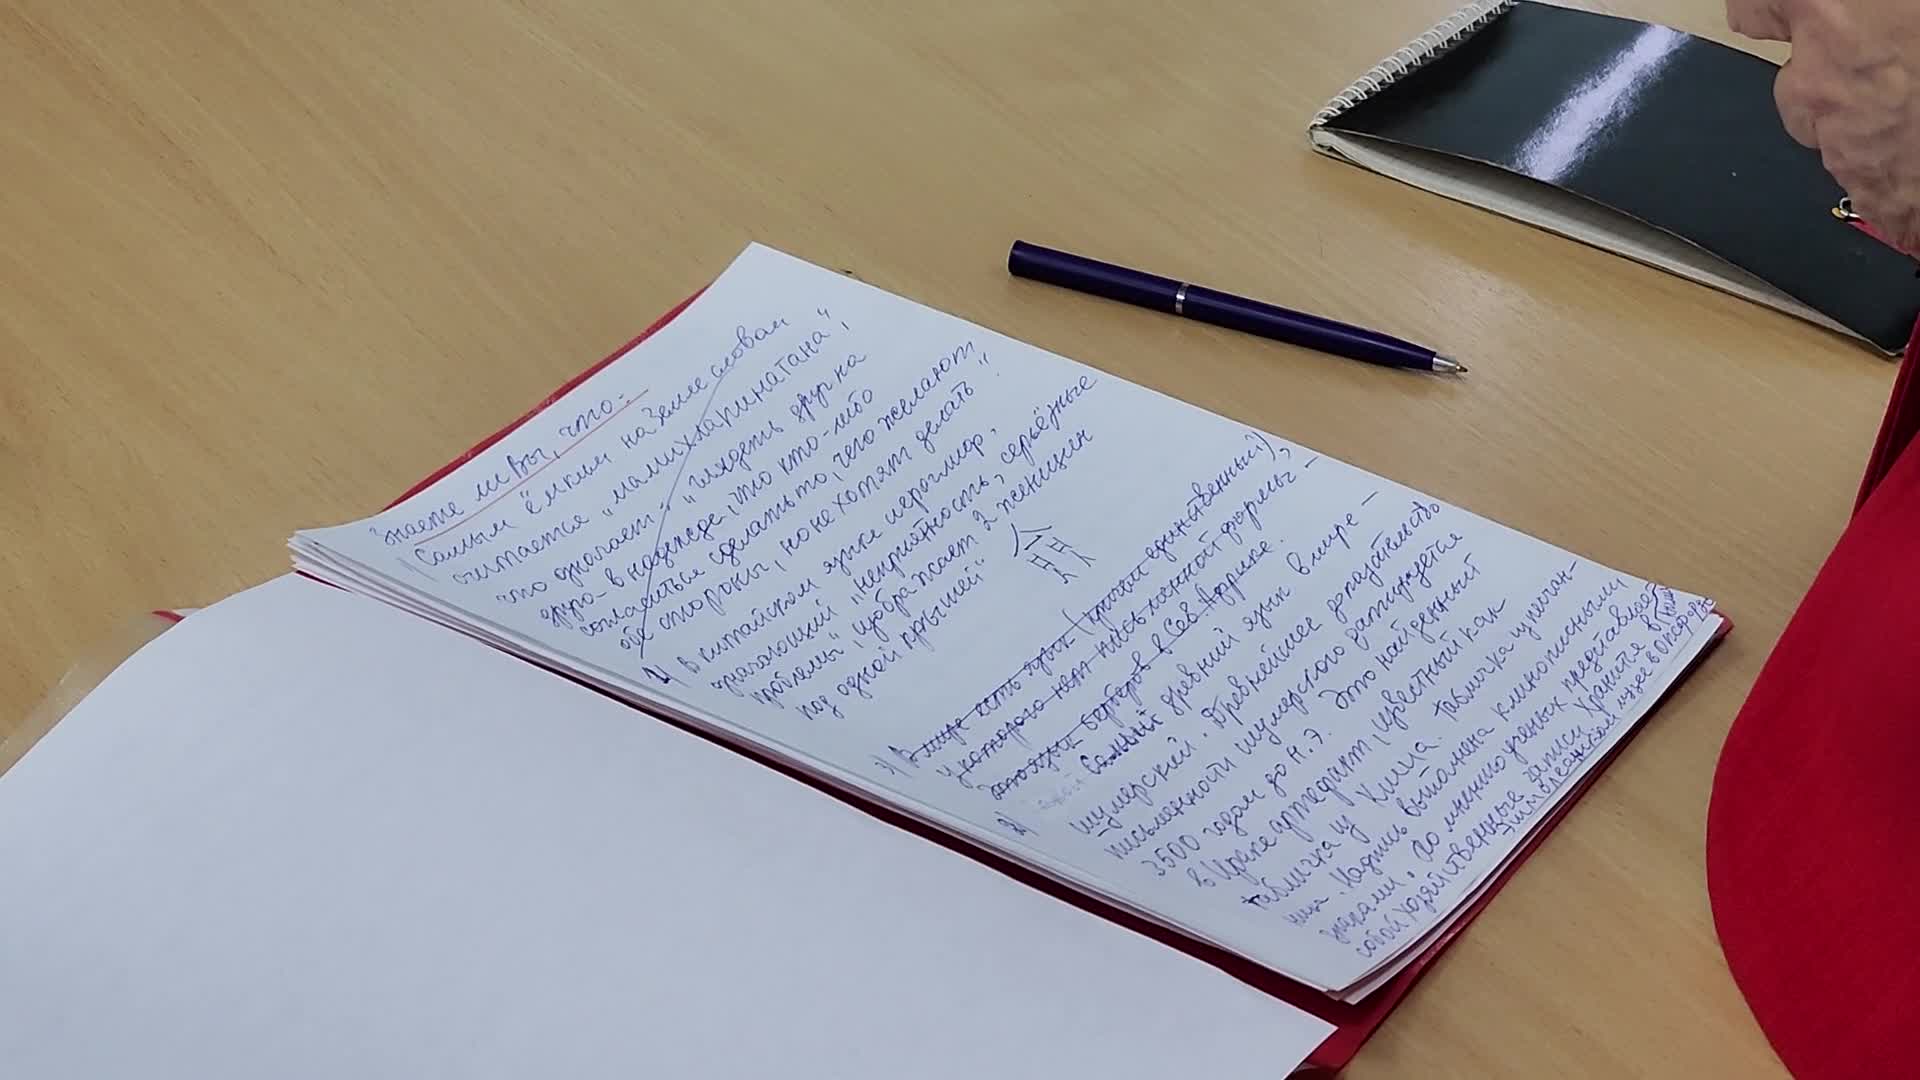 Знаете ли Вы, что...
1) Самым ёмким на Земле словом
считается „мамихлапинатана",
что означает: „глядеть друг на
друга в надежде, что кто-либо
согласится сделать то, чего желают
обе стороны, но не хотят делать".
1) В китайском языке иероглиф,
означающий „неприятность, серьёзные
проблемы", изображает 2 женщин
под одной крышей"
3) В мире есть язык (причём единственный),
у которого нет письменной формы –
это язык берберов в Сев. Африке.
2) Самый древний язык в мире –
шумерский. Древнейшее доказательство
письменности шумерского датируется
3500 годом до н.э. Это найденный
в Ираке артефакт, известный как
табличка из Киша. Табличка из песчан-
ника. Надпись выполнена клинописными
знаками. По мнению ученых представляет
собой хозяйственные записи. Хранится в
Эшмолеанском музее в Оксфорде